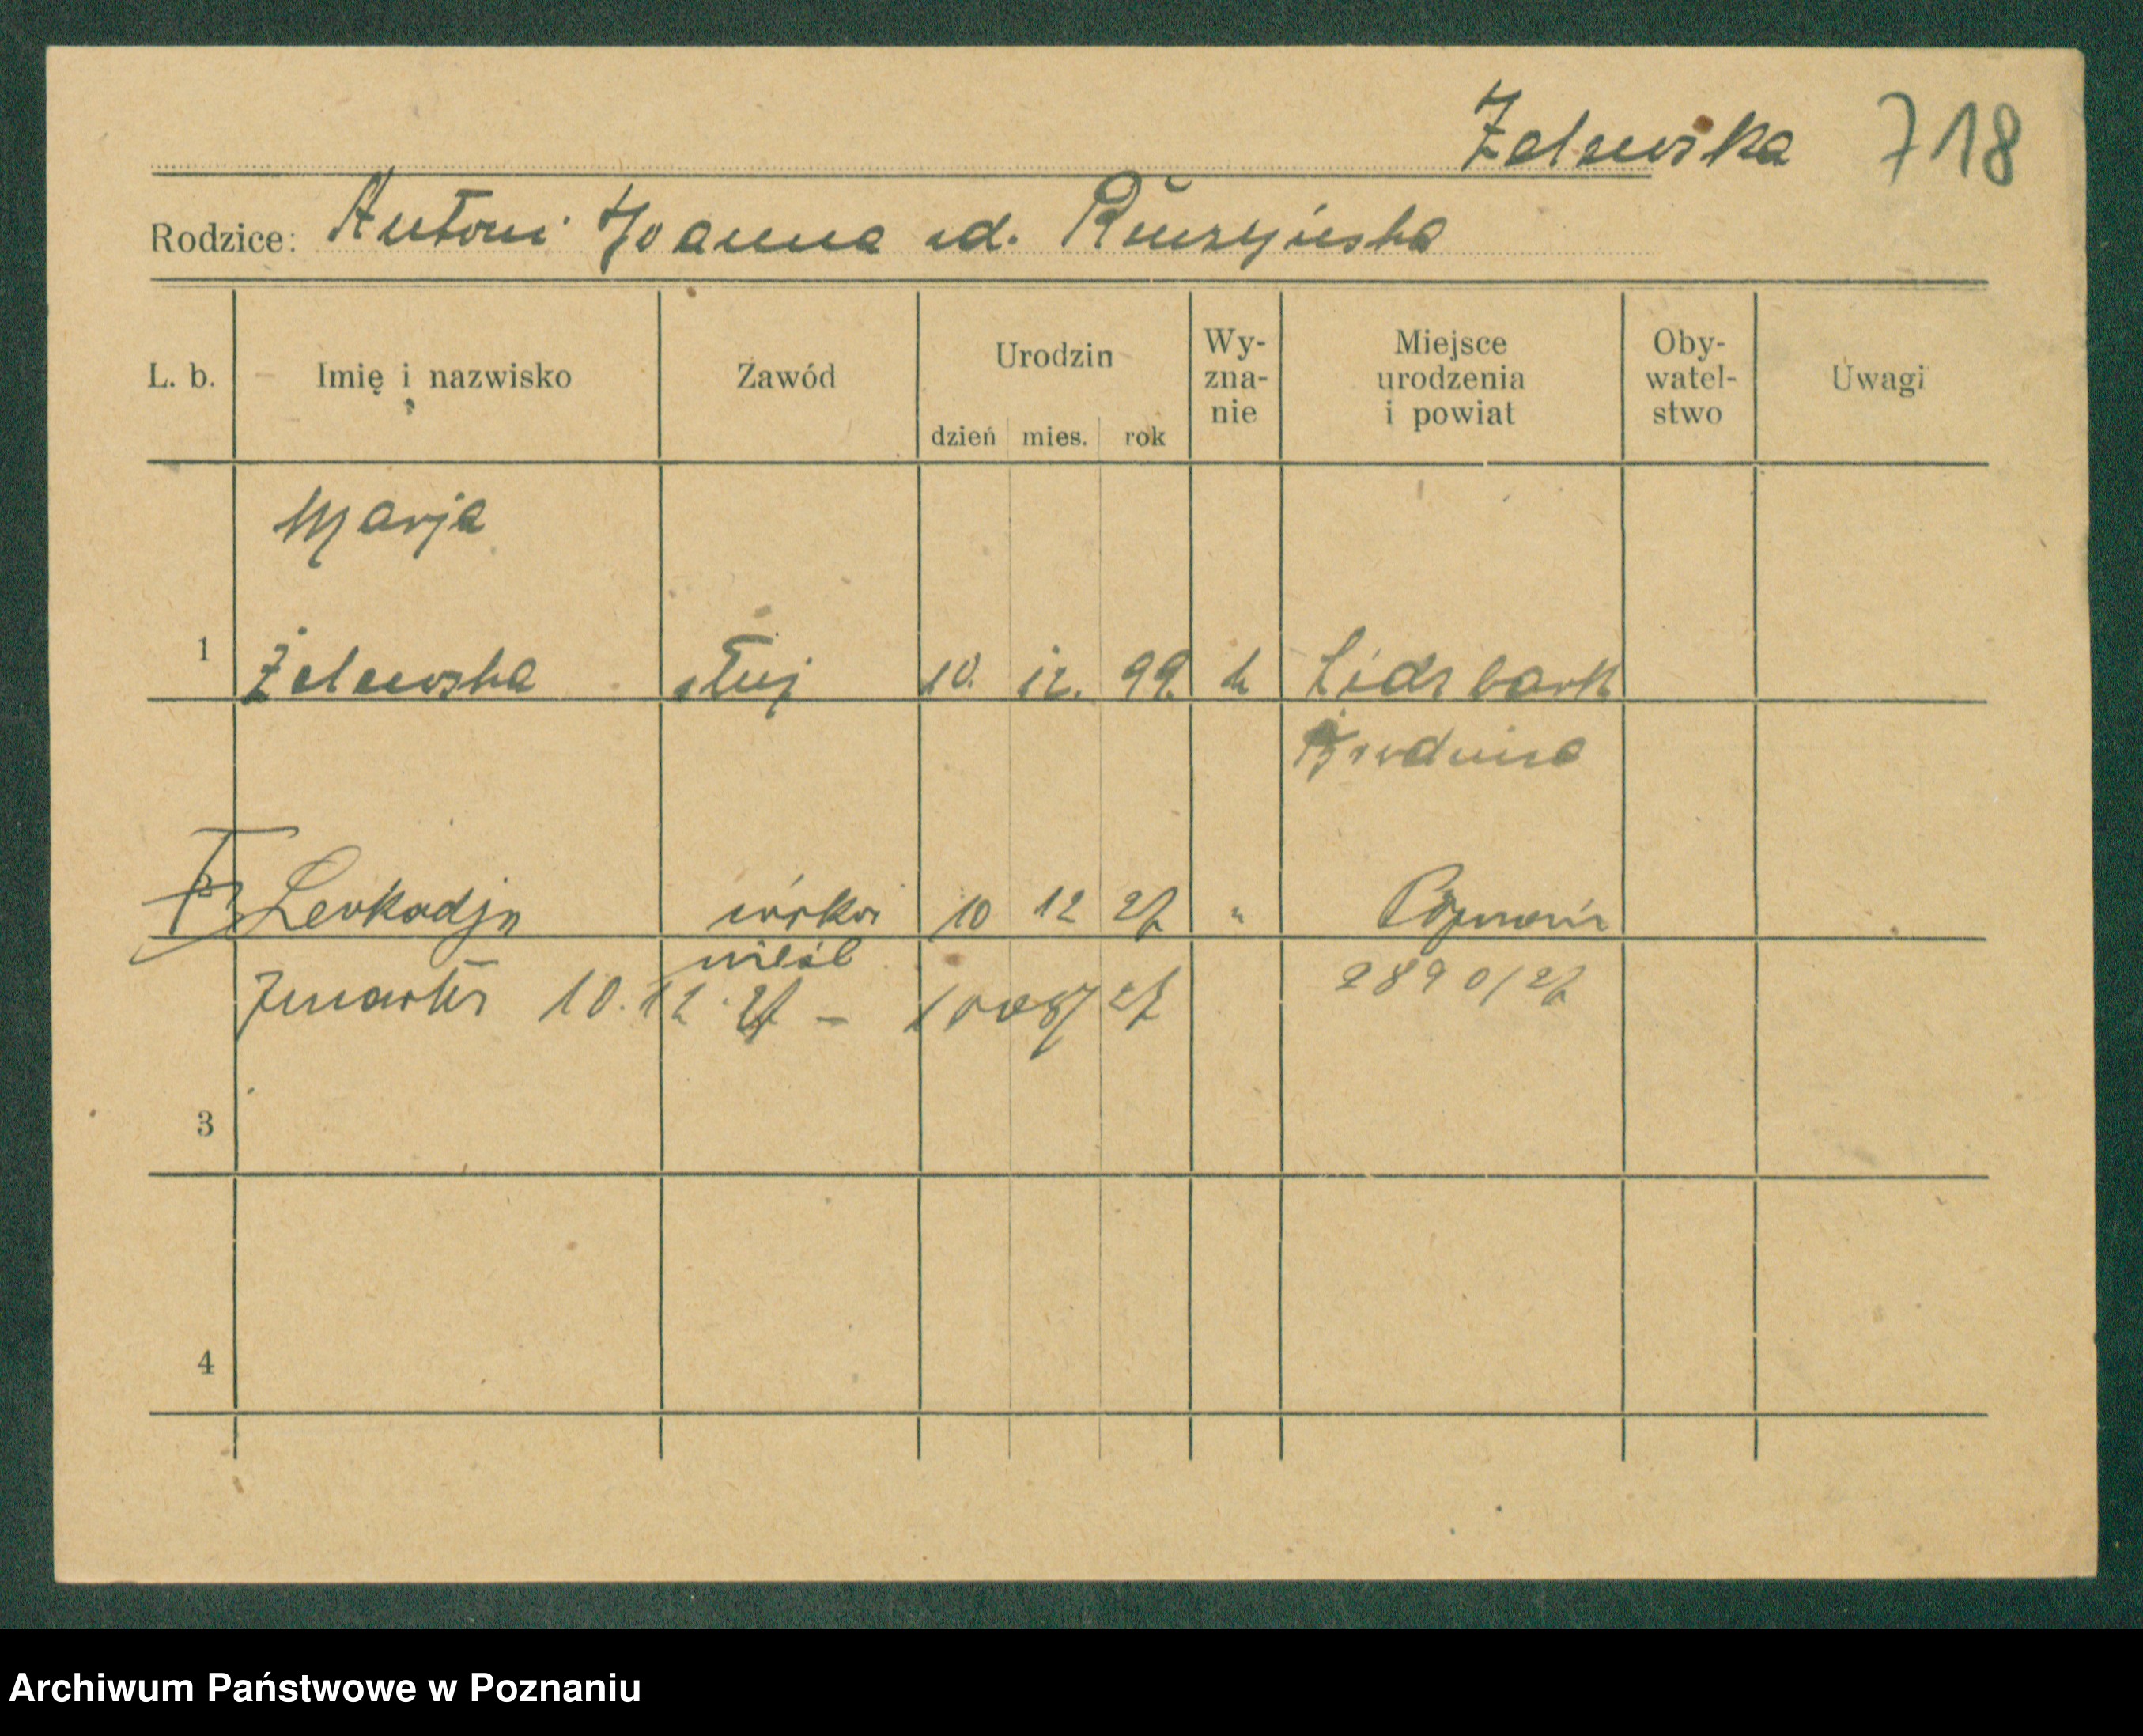 Żelewska 718
Rodzice: Antoni Joanna zd. Ruszyńska
L. b. Imię i nazwisko Zawód Urodzin dzień mies. rok Wy-zna-nie Miejsce urodzenia i powiat Oby-watel-stwo Uwagi
Marja
1 Żelewska służ 10. 12. 99. k Lidzbark
Brodnica
2 Leokadja córka 10 12 27 " Poznań
nieśl
Zmarła 10.12.27 – 27 2890/27
3
4
Archiwum Państwowe w Poznaniu